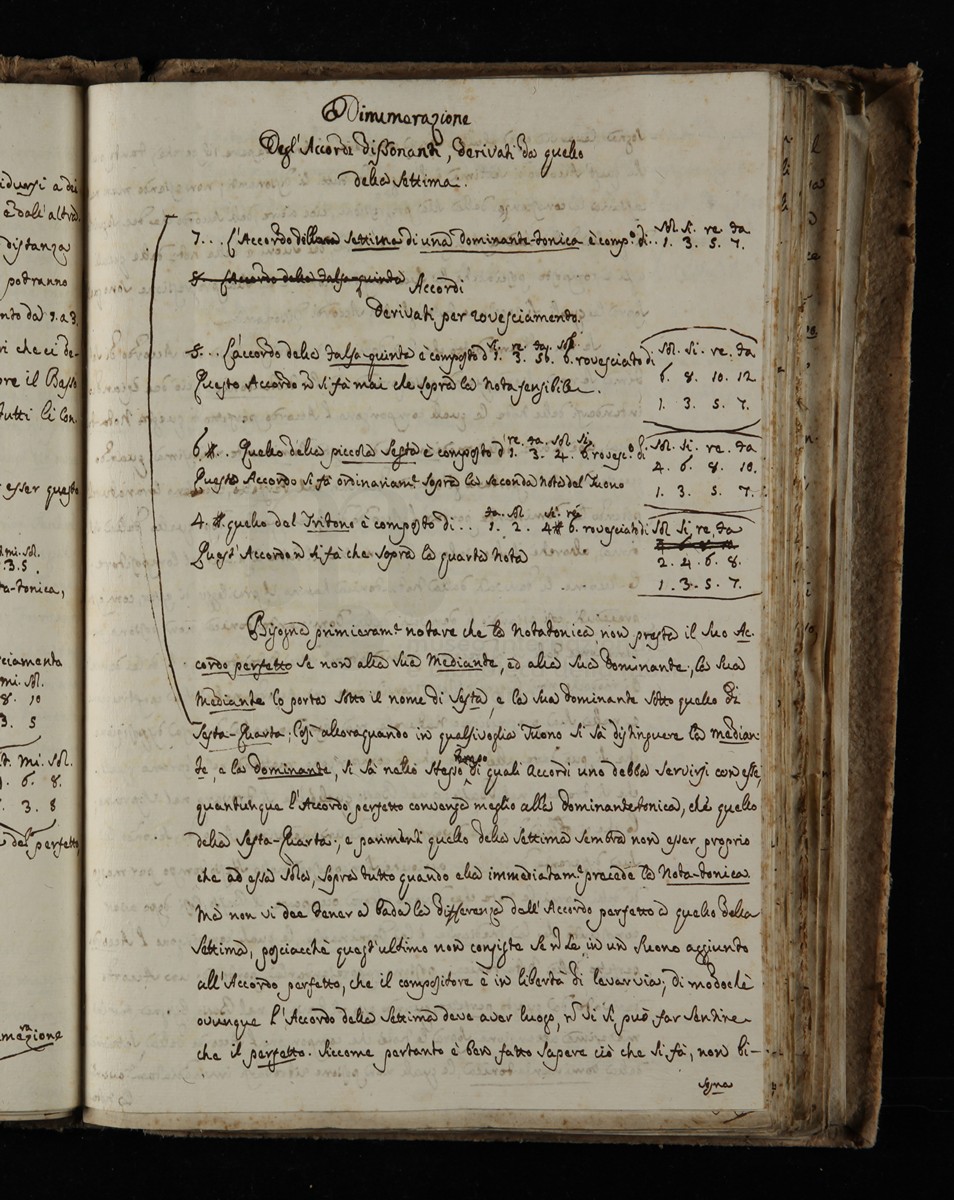 Dinumerazione
Degl'Accordi dissonanti, derivati da quello
della Settima.
7... L'Accordo della Settima di una dominante-tonica è comp.º di.. Sol. Si. re. fa
1. 3. 5. 7.
8. L'Accordo della falsa-quinta Accordi
derivati per rovesciamento.
5... L'accordo della falsa-quinta è composto d' Si. re. fa. Sol. rovesciato di Sol. Si. re. fa
1. 3. 5b. 6.
6. 8. 10. 12
Questo Accordo n̄ si fà mai che sopra la nota sensibile.
1. 3. 5. 7.
6#.. Quello della piccola Sesta è composto d' re. fa. Sol. Si. rovesc.º di Sol. Si. re. fa
1. 3. 4. 6.
4. 6. 8. 10.
Questo Accordo si fà ordinariam.e sopra la seconda nota del Tuono
1. 3. 5. 7.
4.# quello del Tritono è composto di.. fa. Sol. Si. re. rovesciati di Sol Si re fa
1. 2. 4# 6.
Quest'Accordo n̄ si fà che sopra la quarta nota
2. 4. 6. 8.
1. 3. 5. 7.
Bisogna primieram.e notare che la Nota tonica non presta il suo Ac-
cordo perfetto se non alla sua Mediante, ed alla sua dominante; la sua
Mediante lo porta sotto il nome di Sesta, e la sua dominante sotto quello di
Sesta-Quarta; Così allora quando in qualsivoglia Tuono si sà distinguere la Median-
te, e la dominante, si sà nello stesso tempo di quali Accordi uno debba servirsi con esse,
quantunque l'Accordo perfetto convenga meglio alla dominante tonica, chè quello
della Sesta-Quarta; e parimenti quello della Settima sembra non esser proprio
che ad essa sola, sopra tutto quando ella immediatam.e precede la Nota-tonica.
Mà non vi dee tener a bada la differenza dell'Accordo perfetto a quello della
Settima, posciacchè quest'ultimo non consiste se n̄ in un Suono aggiunto
all'Accordo perfetto, che il compositore è in libertà di levar via; di modochè
ovunque l'Accordo della Settima deve aver luogo, n̄ vi si può far sentire
che il perfetto. Siccome pertanto è ben fatto sapere ciò che si fà, non bi-
sogna
idursi a dei
e dall'altra
distanza
potranno
nto da 1. a 3.
ri che ci de-
re il Basso
tutti li Con.
esser questo
mi. Sol.
3. 5.
ta-tonica,
ciamento
mi. Sol.
8. 10
3. 5
mi. Sol.
6. 8.
3. 8
del perfetto